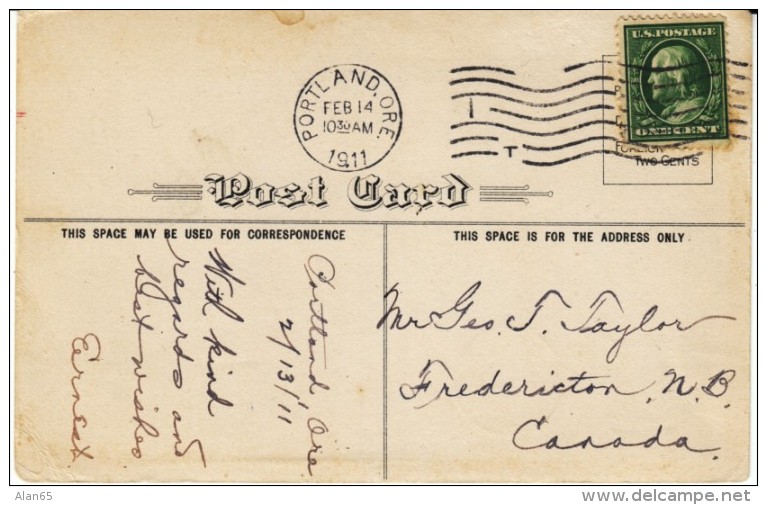 PORTLAND, ORE.
FEB 14
10 30 AM
1911
U.S. POSTAGE
ONE CENT
FOREIGN
TWO CENTS
Post Card
THIS SPACE MAY BE USED FOR CORRESPONDENCE
THIS SPACE IS FOR THE ADDRESS ONLY
Portland Ore
2/13/11
With kind
regards and
best wishes
Ernest
Mr Geo. T. Taylor
Fredericton, N.B.
Canada.
Alan65
delcampe.net